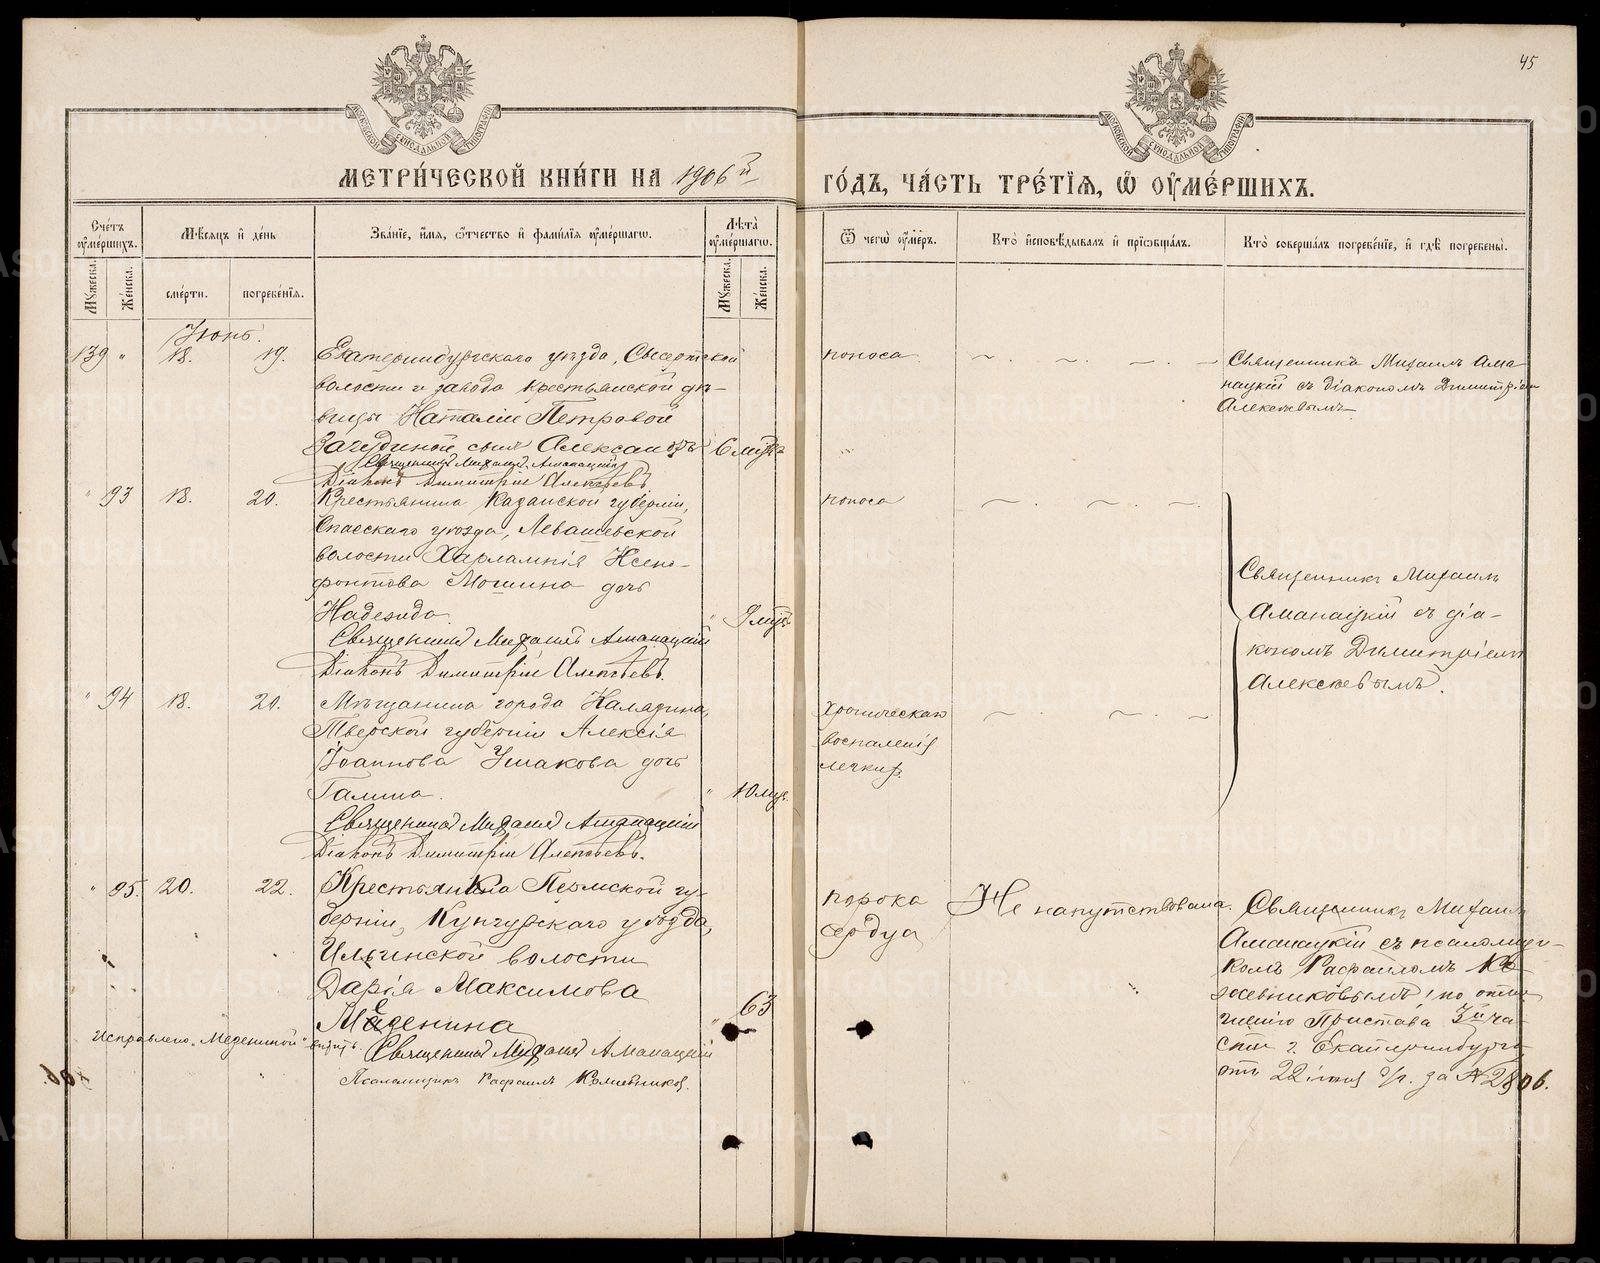 45
МЕТРИ́ЧЕСКОЙ КНИ́ГИ НА 1906й
ГО́ДЪ, ЧА́СТЬ ТРЕ́ТІѦ, Ѿ ОУМЕ́РШИХЪ.
Сче́тъ оуме́ршихъ.
Мꙋ́жеска.
Же́нска.
Мѣ́сяцъ и де́нь
сме́рти.
погребе́нїѧ.
Зва́нїе, и́мѧ, ѻ́тчество и фами́лїѧ оуме́ршагѡ.
Лѣ́та оуме́ршагѡ.
Мꙋ́жеска.
Же́нска.
Ѿ чегѡ̀ оу́меръ.
Кто̀ и҆сповѣ́дывалъ и҆ прїѡбща́лъ.
Кто̀ соверша́лъ погребе́нїе, и҆ гдѣ̀ погребены̀.
Іюнь.
139 " 18. 19.
Екатеринбургскаго уѣзда, Сысертской
волости и завода крестьянской дѣ-
вицы Наталіи Петровой
сынъ Александръ 6 мѣс.
Священникъ Михаилъ Аманацкій
Діаконъ Димитрій Алексѣевъ
поноса
Священникъ Михаилъ Ама-
нацкій съ діакономъ Димитріемъ
Алексѣевымъ
" 93 18. 20.
Крестьянина Казанской губерніи,
Спасскаго уѣзда, Левашевской
волости Харлампія Ксено-
фонтова Мошина дочь
Надежда. " 9 мѣс.
Священникъ Михаилъ Аманацкій
Діаконъ Димитрій Алексѣевъ.
поноса
Священникъ Михаилъ
Аманацкій съ діа-
кономъ Димитріемъ
Алексѣевымъ.
" 94 18. 20.
Мѣщанина города Калязина,
Тверской губерніи Алексія
Іоаннова Ушакова дочь
Галина. " 10 мѣс.
Священникъ Михаилъ Аманацкій
Діаконъ Димитрій Алексѣевъ.
Хроническаго
воспаленія
легкихъ
" 95. 20. 22.
Крестьянка Пермской гу-
берніи, Кунгурскаго уѣзда,
Ильинской волости
Дарія Максимова
Меденина " 63
Исправлено "Медениной" вѣрить. Священникъ Михаилъ Аманацкій
Псаломщикъ Рафаилъ
порока
сердца
Не напутствована.
Священникъ Михаилъ
Аманацкій съ псаломщи-
комъ Рафаиломъ
по отно-
шенію Пристава 3й ча-
сти г. Екатеринбурга
отъ 22 іюня с/г. за № 2806.
METRIKI.GASO-URAL.RU